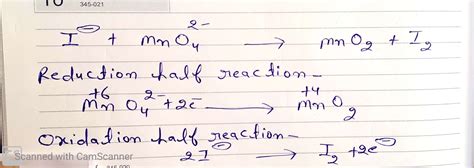 345-021
I⊖ + MnO₄²⁻ ⟶ MnO₂ + I₂
Reduction half reaction –
+6 +4
MnO₄²⁻ + 2e⁻ ⟶ MnO₂
Oxidation half reaction –
2I⊖ ⟶ I₂ + 2e⊖
Scanned with CamScanner